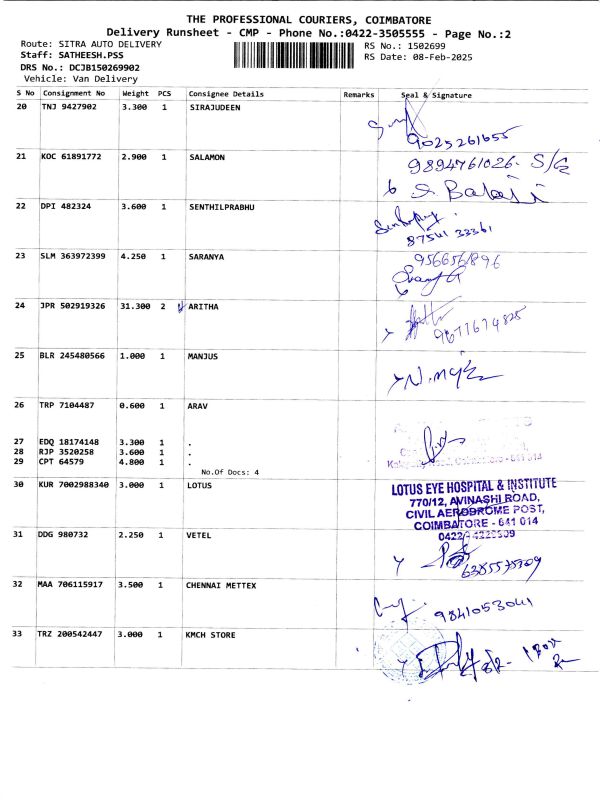 THE PROFESSIONAL COURIERS, COIMBATORE
Delivery Runsheet - CMP - Phone No.:0422-3505555 - Page No.:2
Route: SITRA AUTO DELIVERY
RS No.: 1502699
Staff: SATHEESH.PSS
RS Date: 08-Feb-2025
DRS No.: DCJB150269902
Vehicle: Van Delivery
S No Consignment No Weight PCS Consignee Details Remarks Seal & Signature
20 TNJ 9427902 3.300 1 SIRAJUDEEN
9025261655
21 KOC 61891772 2.900 1 SALAMON
9894761026- S/G
S. Balaji
22 DPI 482324 3.600 1 SENTHILPRABHU
87541 33361
23 SLM 363972399 4.250 1 SARANYA
956656896
24 JPR 502919326 31.300 2 ARITHA
9677674825
25 BLR 245480566 1.000 1 MANJUS
26 TRP 7104487 0.600 1 ARAV
27 EDQ 18174148 3.300 1 .
28 RJP 3520258 3.600 1 .
29 CPT 64579 4.800 1 .
No.Of Docs: 4
30 KUR 7002988340 3.000 1 LOTUS
LOTUS EYE HOSPITAL & INSTITUTE
770/12, AVINASHI ROAD,
CIVIL AERODROME POST,
COIMBATORE - 641 014
31 DDG 980732 2.250 1 VETEL
32 MAA 706115917 3.500 1 CHENNAI METTEX
9841053041
33 TRZ 200542447 3.000 1 KMCH STORE